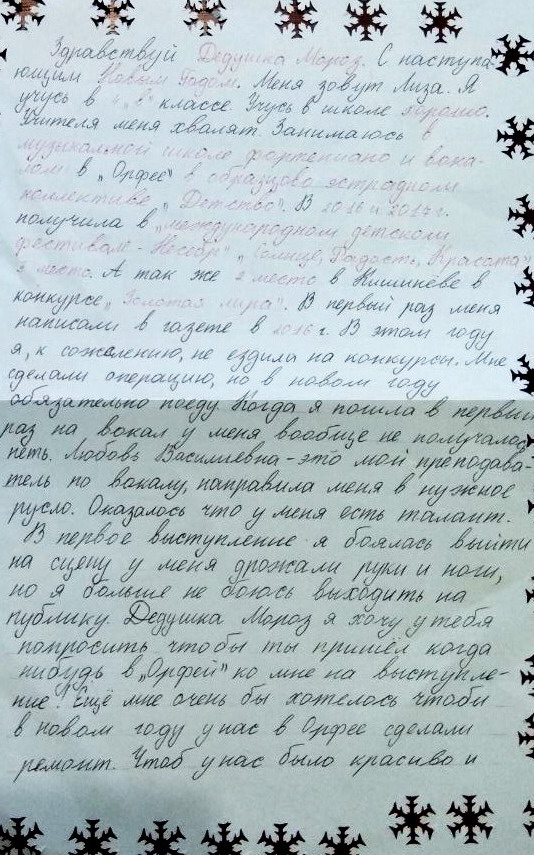 Здравствуй Дедушка Мороз. С наступа-
ющим Новым Годом. Меня зовут Лиза. Я
учусь в 4 „в" классе. Учусь в школе хорошо.
Учителя меня хвалят. Занимаюсь в
музыкальной школе фортепиано и вока-
лом в „Орфее" в образцово эстрадном
коллективе „Детство". В 2016 и 2017 г.
получила в „международном детском
фестивале - Несебр" „Солнце, Радость, Красота"
место. А так же 2 место в Кишинёве в
конкурсе „Золотая лира". В первый раз меня
написали в газете в 2016 г. В этом году
я, к сожелению, не ездила на конкурсы. Мне
сделали операцию, но в новом году
обязательно поеду. Когда я пошла в первый
раз на вокал у меня вообще не получалось
петь. Любовь Василиевна - это мой преподава-
тель по вокалу, направила меня в нужное
русло. Оказалось что у меня есть талант.
В первое выступление я боялась выйти
на сцену у меня дрожали руки и ноги,
но я больше не боюсь выходить на
публику. Дедушка Мороз я хочу у тебя
попросить чтобы ты пришёл когда
нибудь в „Орфей" ко мне на выступле-
ние! Ещё мне очень бы хотелось чтобы
в новом году у нас в Орфее сделали
ремонт. Чтоб у нас было красиво и